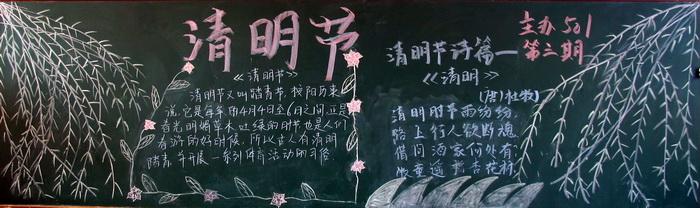 清明节
《清明节》
清明节又叫踏青节，按阳历来
说，它是每年的4月4日至6日之间，正是
春光明媚草木吐绿的时节，也是人们
春游的好时候，所以古人有清明
踏青，并开展一系列体育活动的习俗
主办501
第二期
清明节诗篇一
《清明》
[唐]杜牧
清明时节雨纷纷，
路上行人欲断魂。
借问酒家何处有，
牧童遥 杏花村。